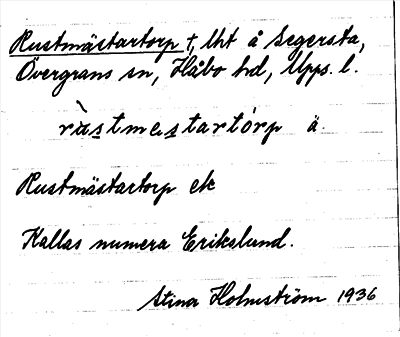 Rustmästartorp †, lht å Segersta,
Övergrans sn, Håbo hd, Upps. l.
ràstmestartórp ä.
Rustmästartorp ek
Kallas numera Erikslund.
Stina Holmström 1936